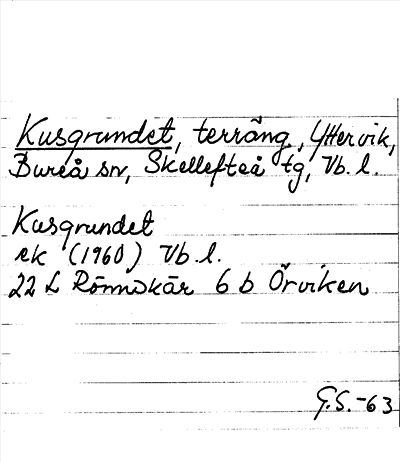 Kusgrundet, terräng, Yttervik,
Bureå sn, Skellefteå tg, Vb. l.
Kusgrundet
ek (1960) Vb. l.
22 L Rönnskär 6 b Örviken
G.S.-63